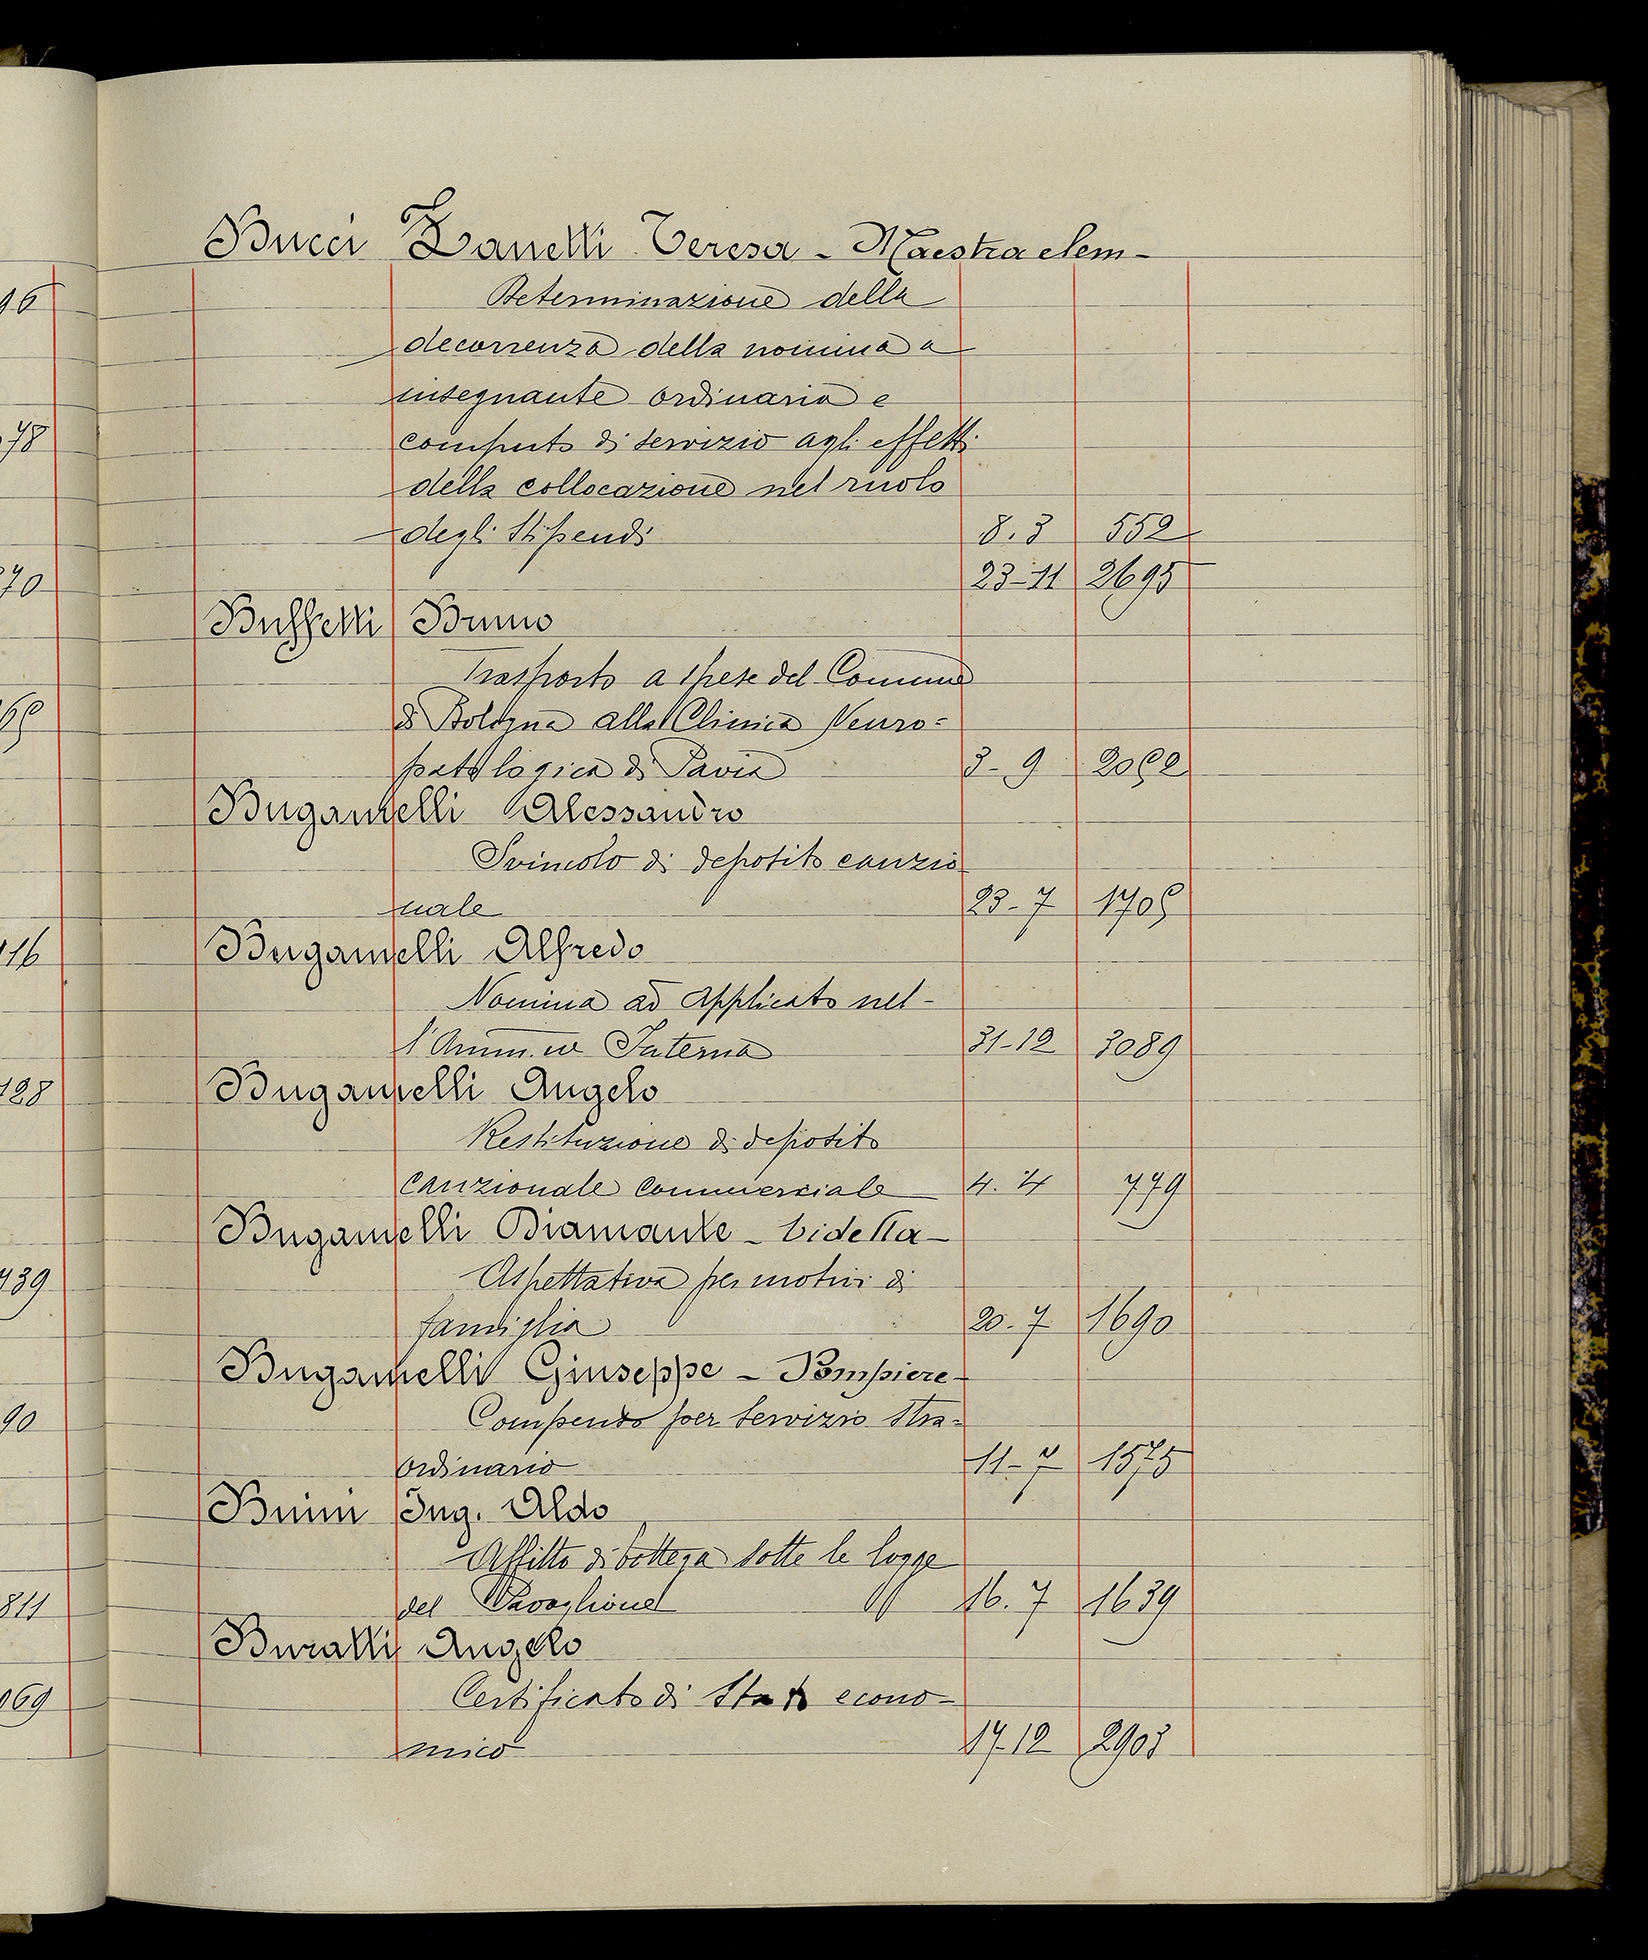 Bucci Zanetti Teresa - Maestra elem -
96
Determinazione della
decorrenza della nomina a
insegnante ordinaria e
computo di servizio agli effetti
78
della collocazione nel ruolo
degli stipendi 8.3 552
70 23-11 2695
Buffetti Bruno
Trasporto a spese del Comune
di Bologna alla Clinica Neuro=
patologica di Pavia 3-9 2062
Bugamelli Alessandro
Svincolo di deposito cauzio
nale 23-7 1705
116
Bugamelli Alfredo
Nomina ad Applicato nel-
l'Amm.ve Interna 31-12 3089
128
Bugamelli Angelo
Restituzione di deposito
cauzionale commerciale 4.4 779
Bugamelli Diamante - bidella -
739
Aspettativa per motivi di
famiglia 20-7 1690
Bugamelli Giuseppe - Pompiere -
90
Compenso per servizio stra=
ordinario 11-7 1575
Buini Ing. Aldo
Affitto di bottega sotto le logge
811
del Pavaglione 16.7 1639
Buratti Angelo
69
Certificato di stato econo-
mico 17-12 2903